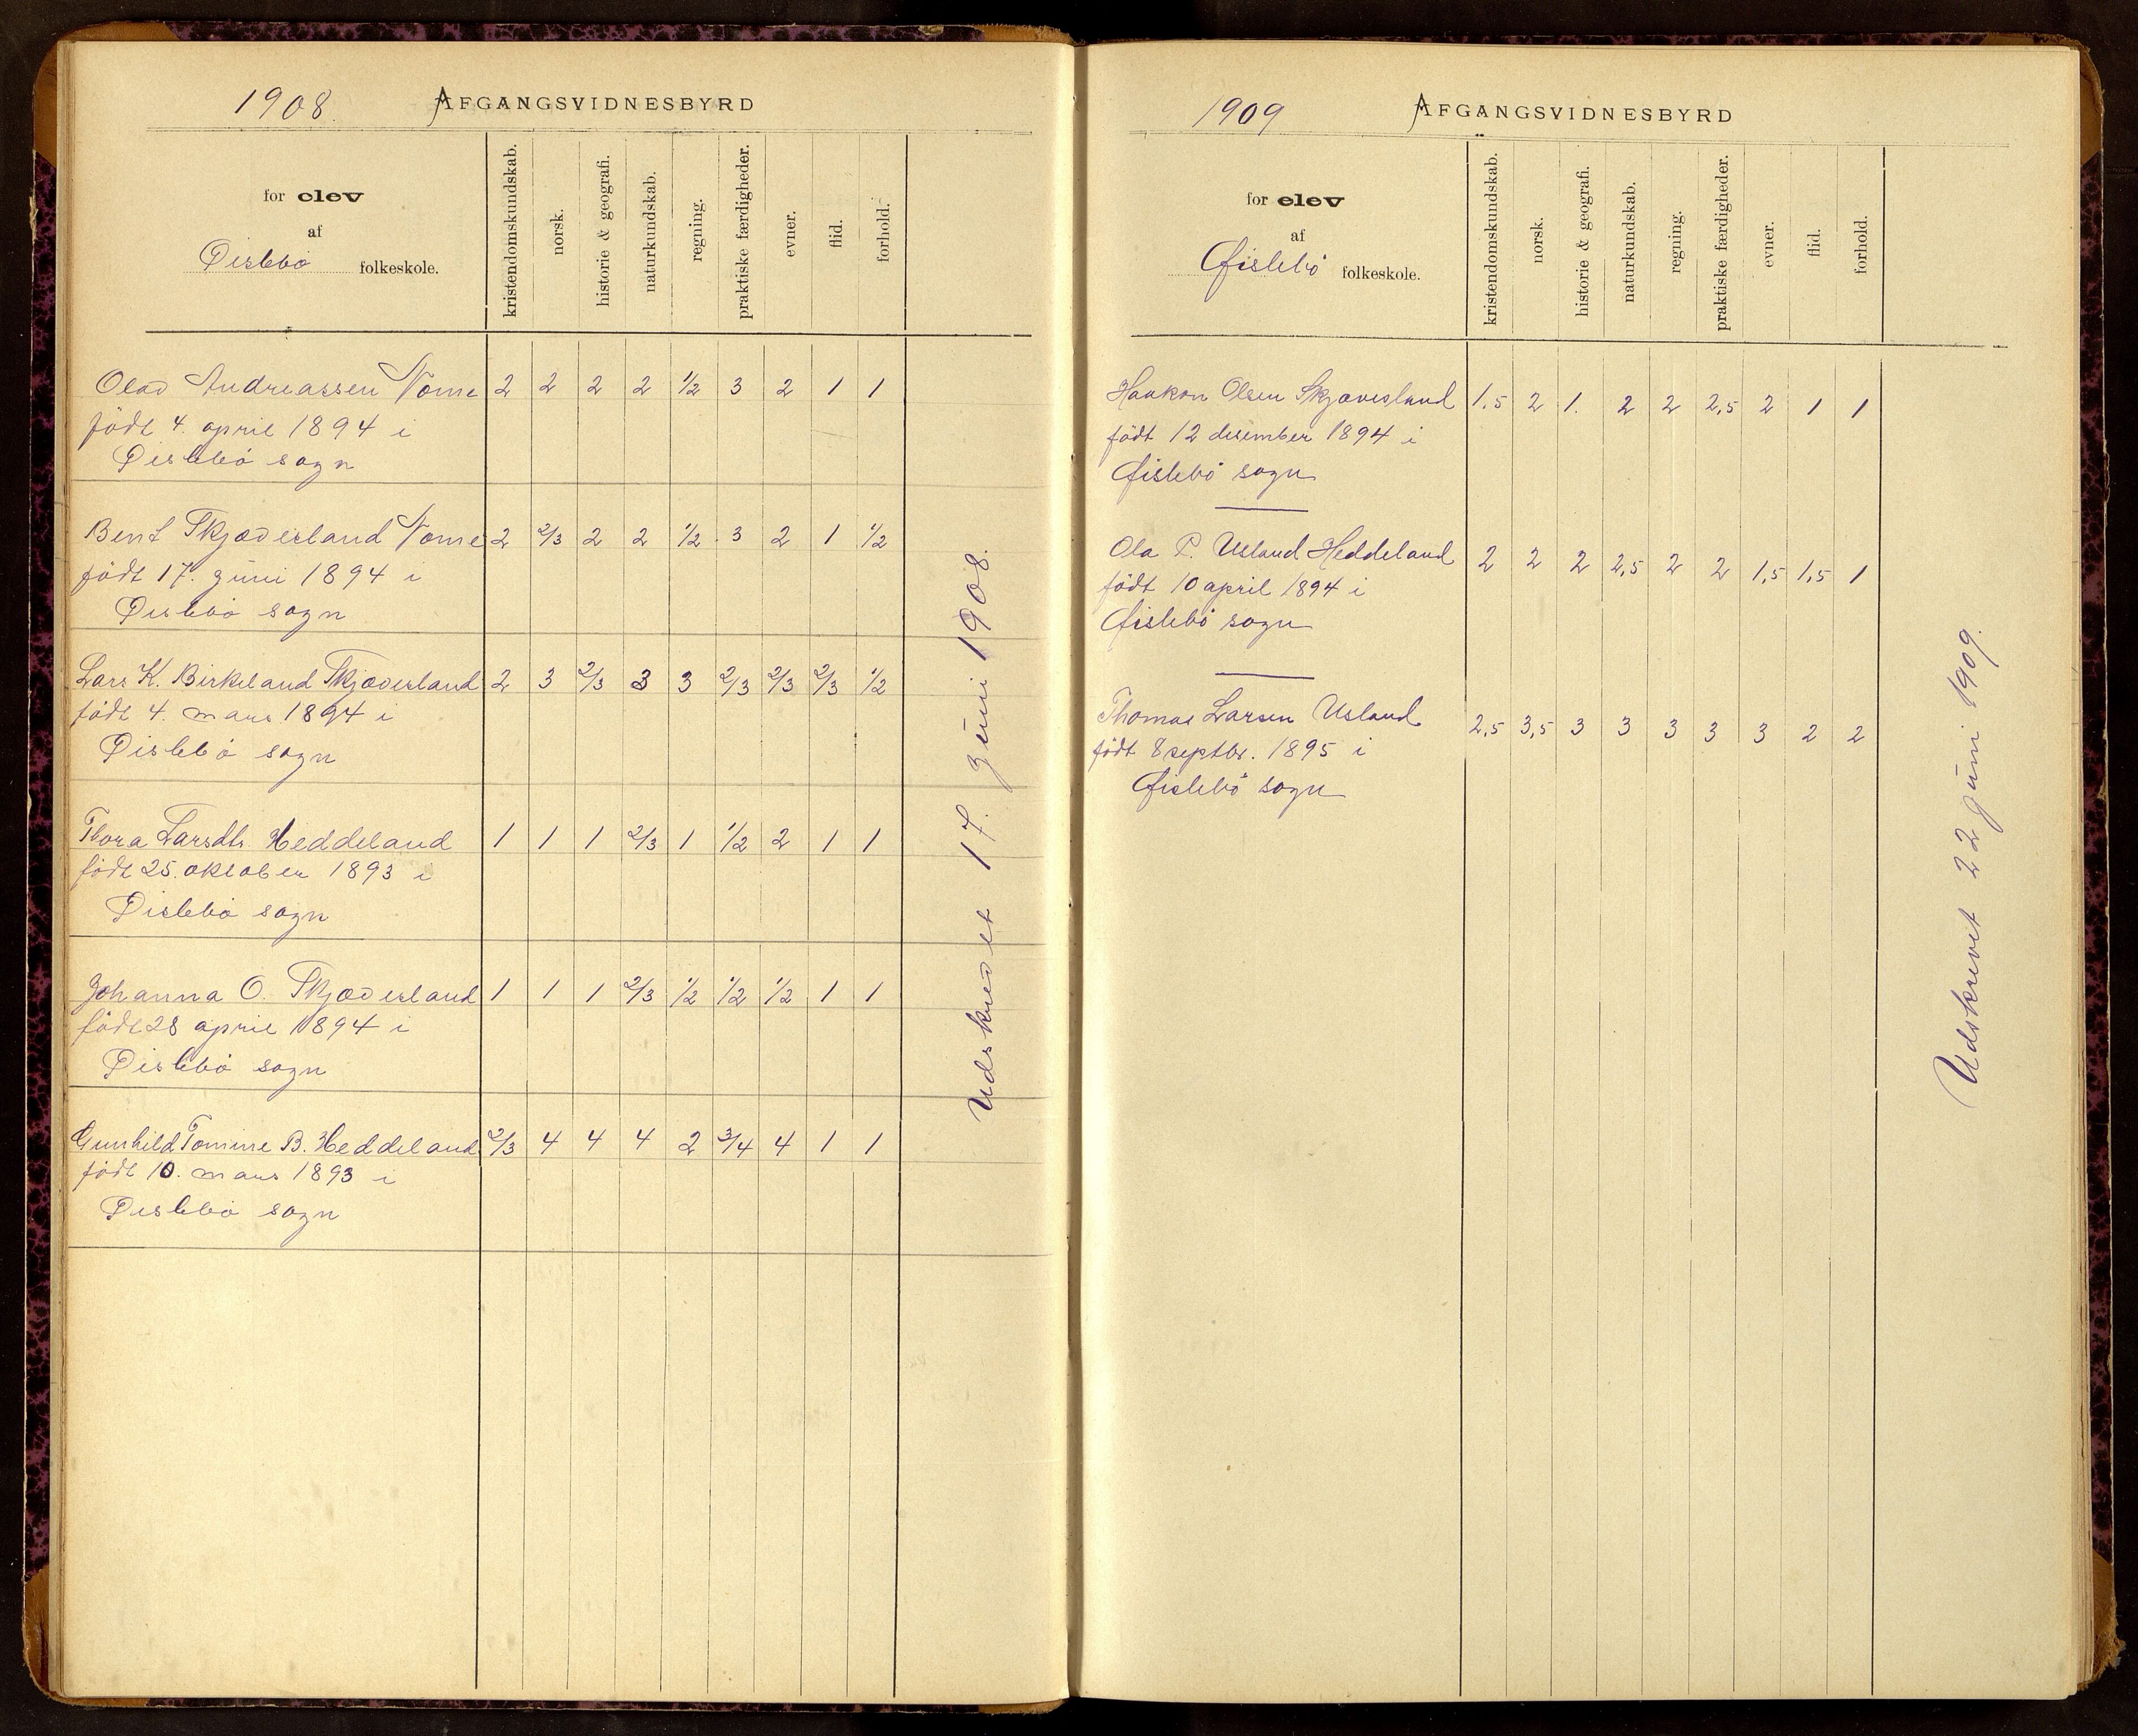 1908.
AFGANGSVIDNESBYRD
for elev
af
Øislebø folkeskole.
kristendomskundskab.
norsk.
historie & geografi.
naturkundskab.
regning.
praktiske færdigheder.
evner.
flid.
forhold.
Olav Andreassen Nome 2 2 2 2 1/2 3 2 1 1
født 4. april 1894 i
Øislebø sogn
Bent Skjæveland Nome 2 2/3 2 2 1/2 3 2 1 1/2
født 17. juni 1894 i
Øislebø sogn
Lars K. Birkeland Skjævesland 2 3 2/3 3 3 2/3 2/3 2/3 1/2
født 4. mars 1894 i
Øislebø sogn
Thora Larsdtr. Heddeland 1 1 1 2/3 1 1/2 2 1 1
født 25. oktober 1893 i
Øislebø sogn
Johanna O. Skjævesland 1 1 1 2/3 1/2 1/2 1/2 1 1
født 28 april 1894 i
Øislebø sogn
Gunhild Tomine B. Heddeland 2/3 4 4 4 2 3/4 4 1 1
født 10. mars 1893 i
Øislebø sogn
Udskrevet 17. juni 1908.
1909
AFGANGSVIDNESBYRD
for elev
af
Øislebø folkeskole.
kristendomskundskab.
norsk.
historie & geografi.
naturkundskab.
regning.
praktiske færdigheder.
evner.
flid.
forhold.
Haakon Olsen Skjævesland 1,5 2 1. 2 2 2,5 2 1 1
født 12 desember 1894 i
Øislebø sogn
Ola P. Usland Heddeland 2 2 2 2,5 2 2 1,5 1,5 1
født 10 april 1894 i
Øislebø sogn
Thomas Larsen Usland 2,5 3,5 3 3 3 3 3 2 2
født 8 septbr. 1895 i
Øislebø sogn
Udskrevet 22 juni 1909.